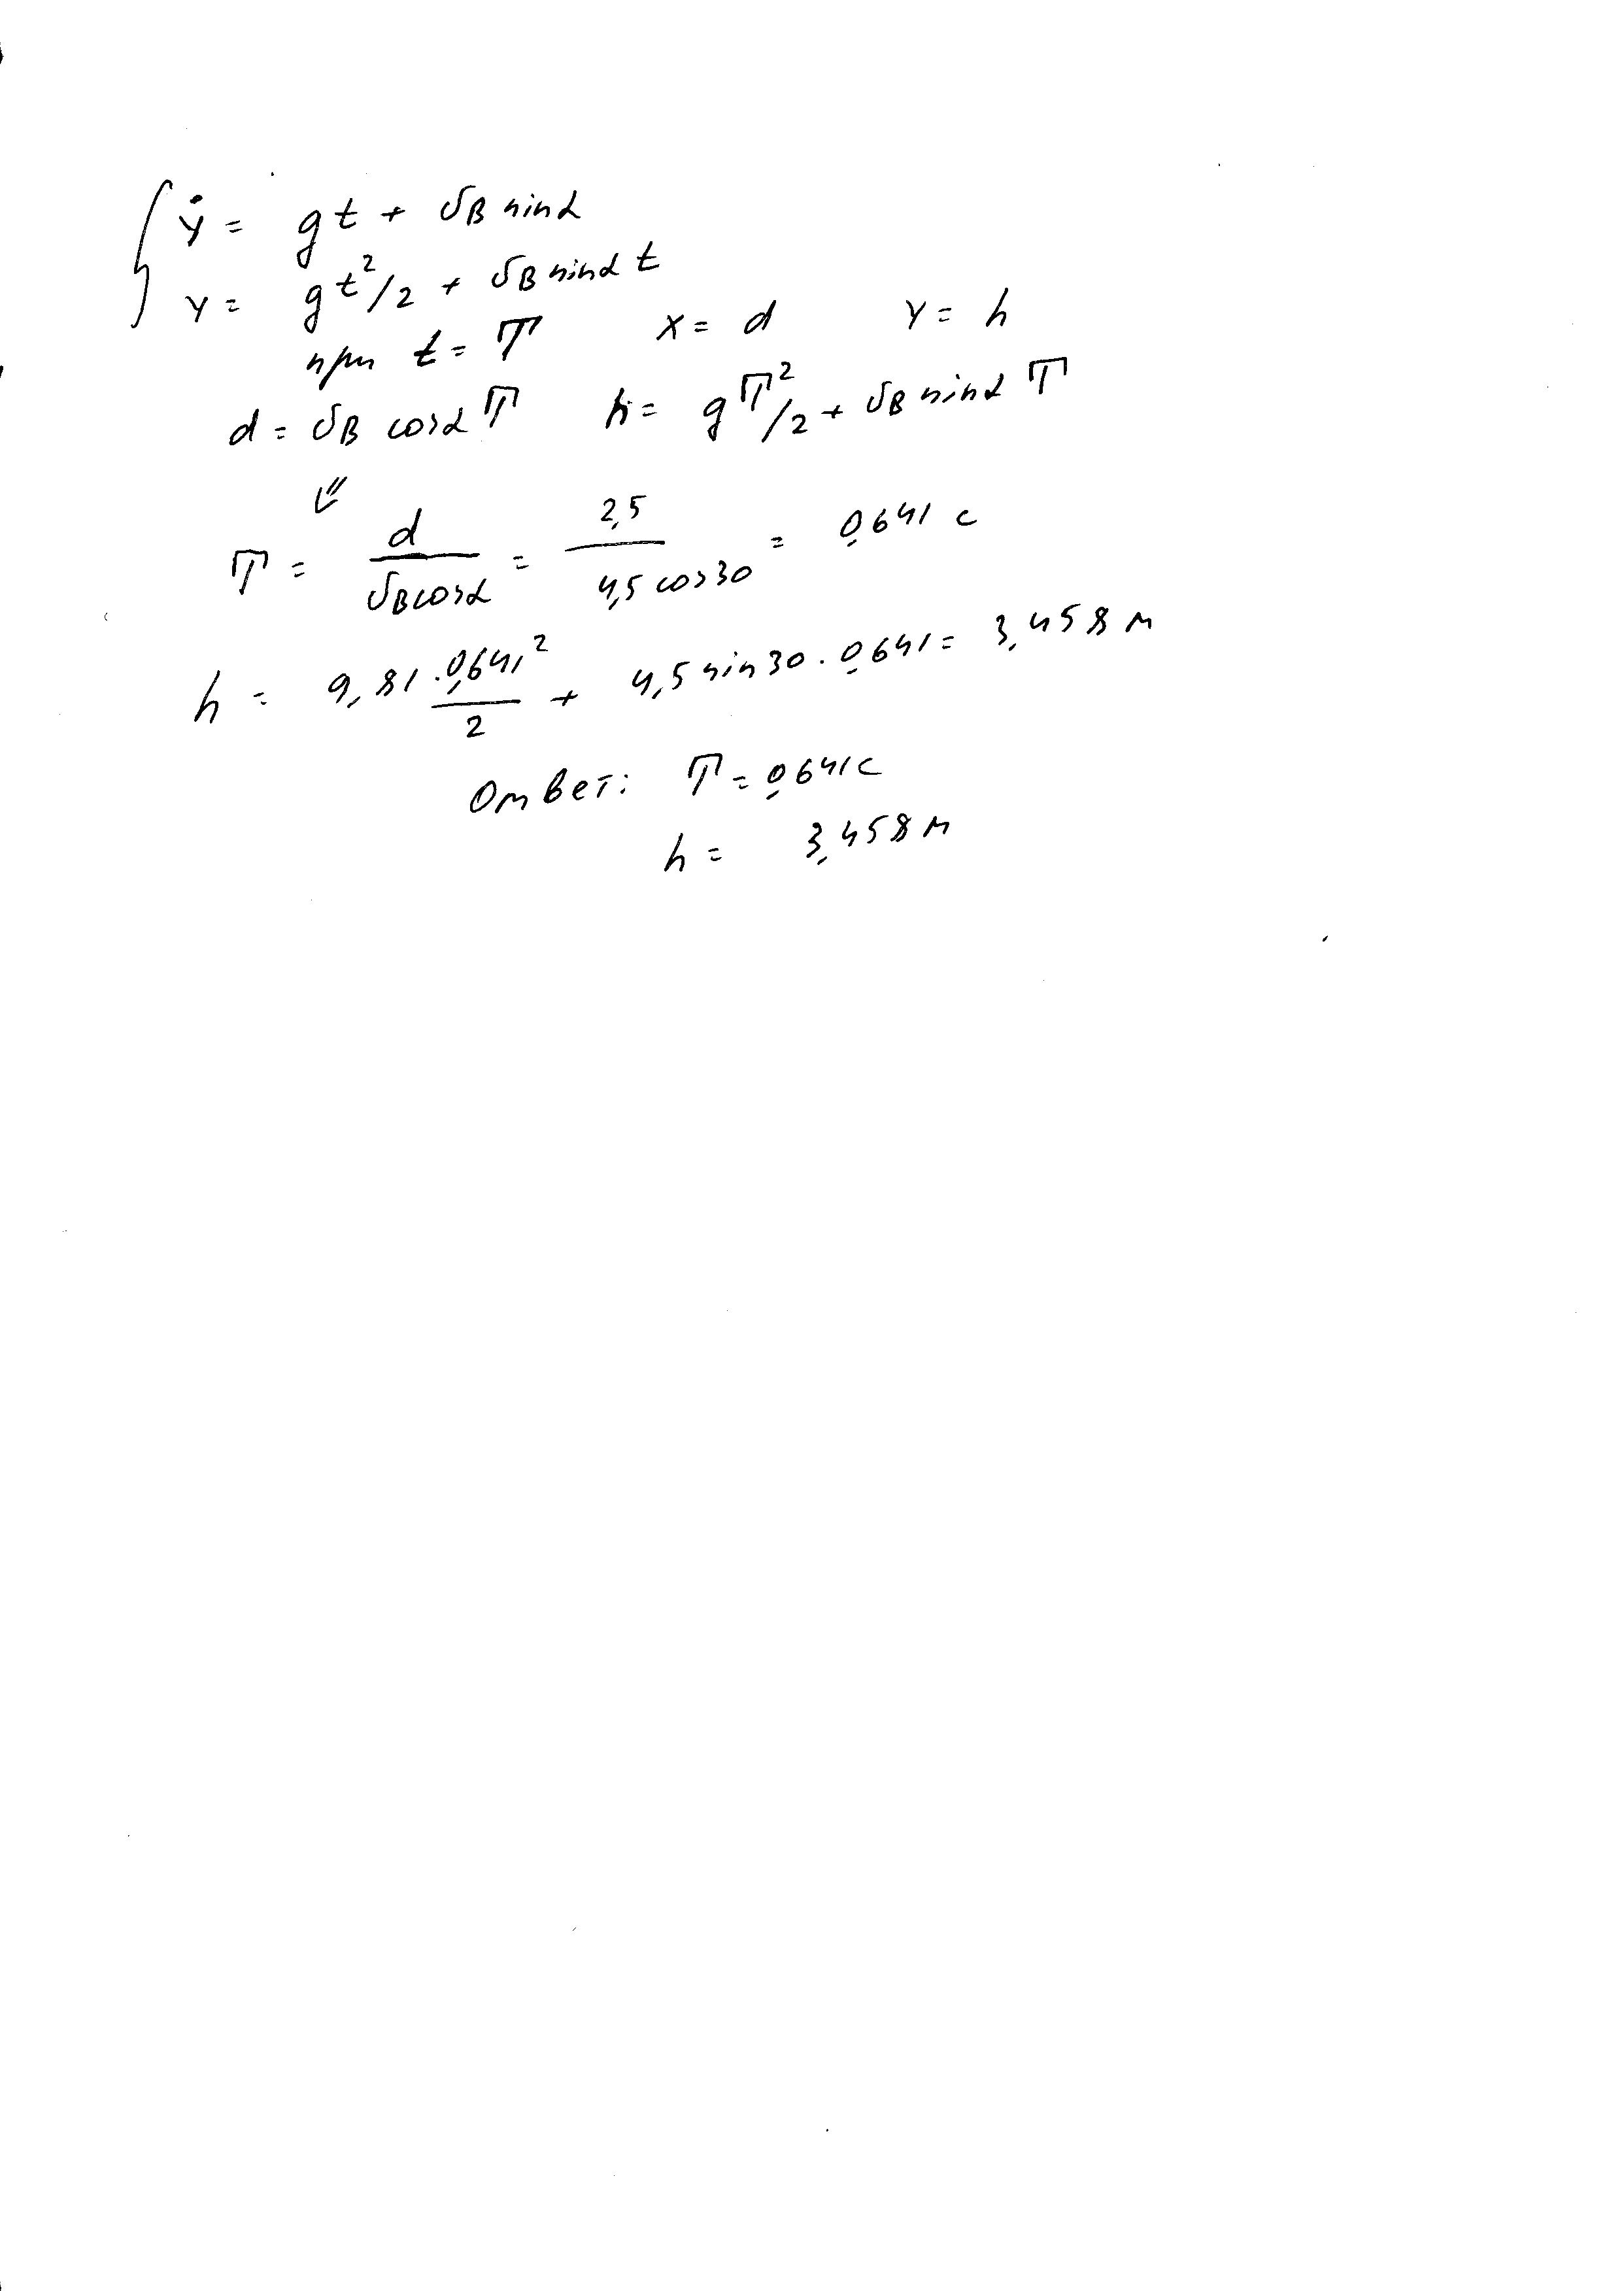 ẏ = gt + υB sinα
y = gt²/2 + υB sinα t
при t = T x = d y = h
d = υB cosα T h = gT²/2 + υB sinα T
⇓
T = d/(υB cosα) = 2,5/(4,5 cos30) = 0,641 с
h = 9,81 · 0,641²/2 + 4,5 sin30 · 0,641 = 3,458 м
Ответ: T = 0,641с
h = 3,458 м